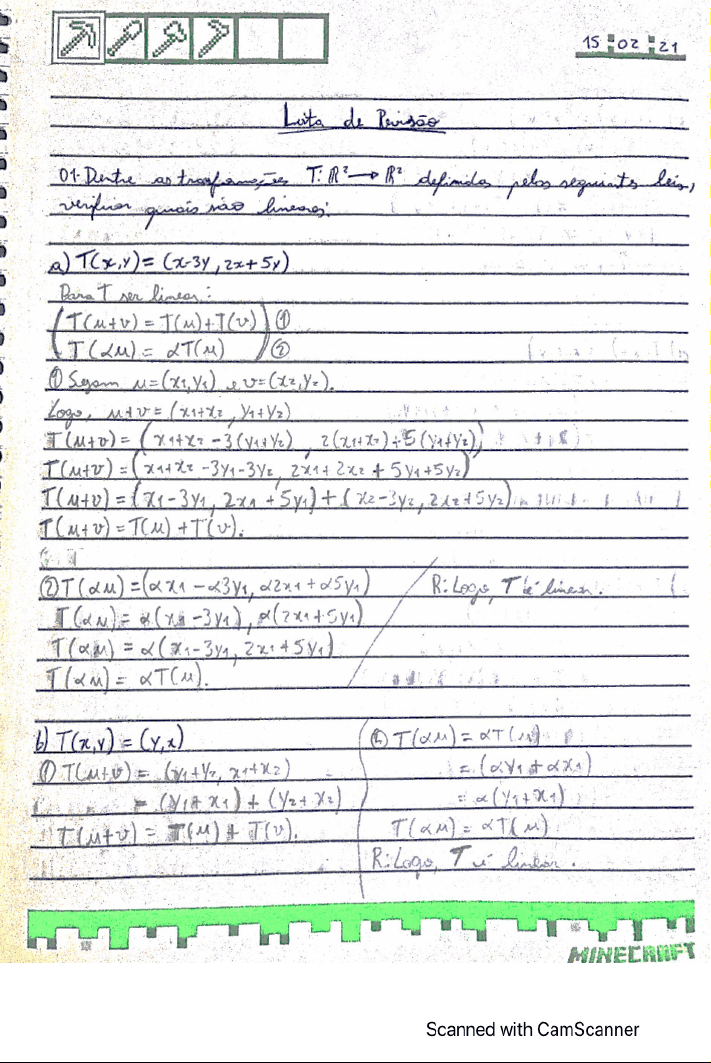 15 02 21
Lista de Revisão
01-Dentre as transformações T: ℝ² → ℝ² definidas pelas seguintes leis,
verificar quais são lineares:
a) T(x,y) = (x-3y, 2x+5y)
Para T ser linear:
T(u+v) = T(u)+T(v) ①
T(αu) = αT(u) ②
① Sejam u=(x₁,y₁) e v=(x₂,y₂).
Logo, u+v = (x₁+x₂, y₁+y₂)
T(u+v) = (x₁+x₂-3(y₁+y₂), 2(x₁+x₂)+5(y₁+y₂))
T(u+v) = (x₁+x₂-3y₁-3y₂, 2x₁+2x₂+5y₁+5y₂)
T(u+v) = (x₁-3y₁, 2x₁+5y₁)+(x₂-3y₂, 2x₂+5y₂)
T(u+v) = T(u)+T(v).
② T(αu) = (αx₁-α3y₁, α2x₁+α5y₁)
T(αu) = α(x₁-3y₁), α(2x₁+5y₁)
T(αu) = α(x₁-3y₁, 2x₁+5y₁)
T(αu) = αT(u).
R: Logo, T é linear.
b) T(x,y) = (y,x)
① T(u+v) = (y₁+y₂, x₁+x₂)
= (y₁+x₁)+(y₂+x₂)
T(u+v) = T(u)+T(v).
② T(αu) = αT(u)
= (αy₁+αx₁)
= α(y₁+x₁)
T(αu) = αT(u)
R: Logo, T é linear.
MINECRAFT
Scanned with CamScanner